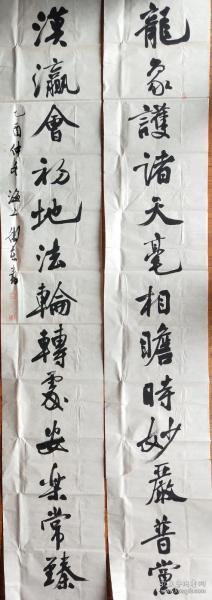 龍象護諸天毫相瞻時妙嚴普黨
漢瀛會初地法輪轉處安樂常臻
乙酉仲冬海上
書